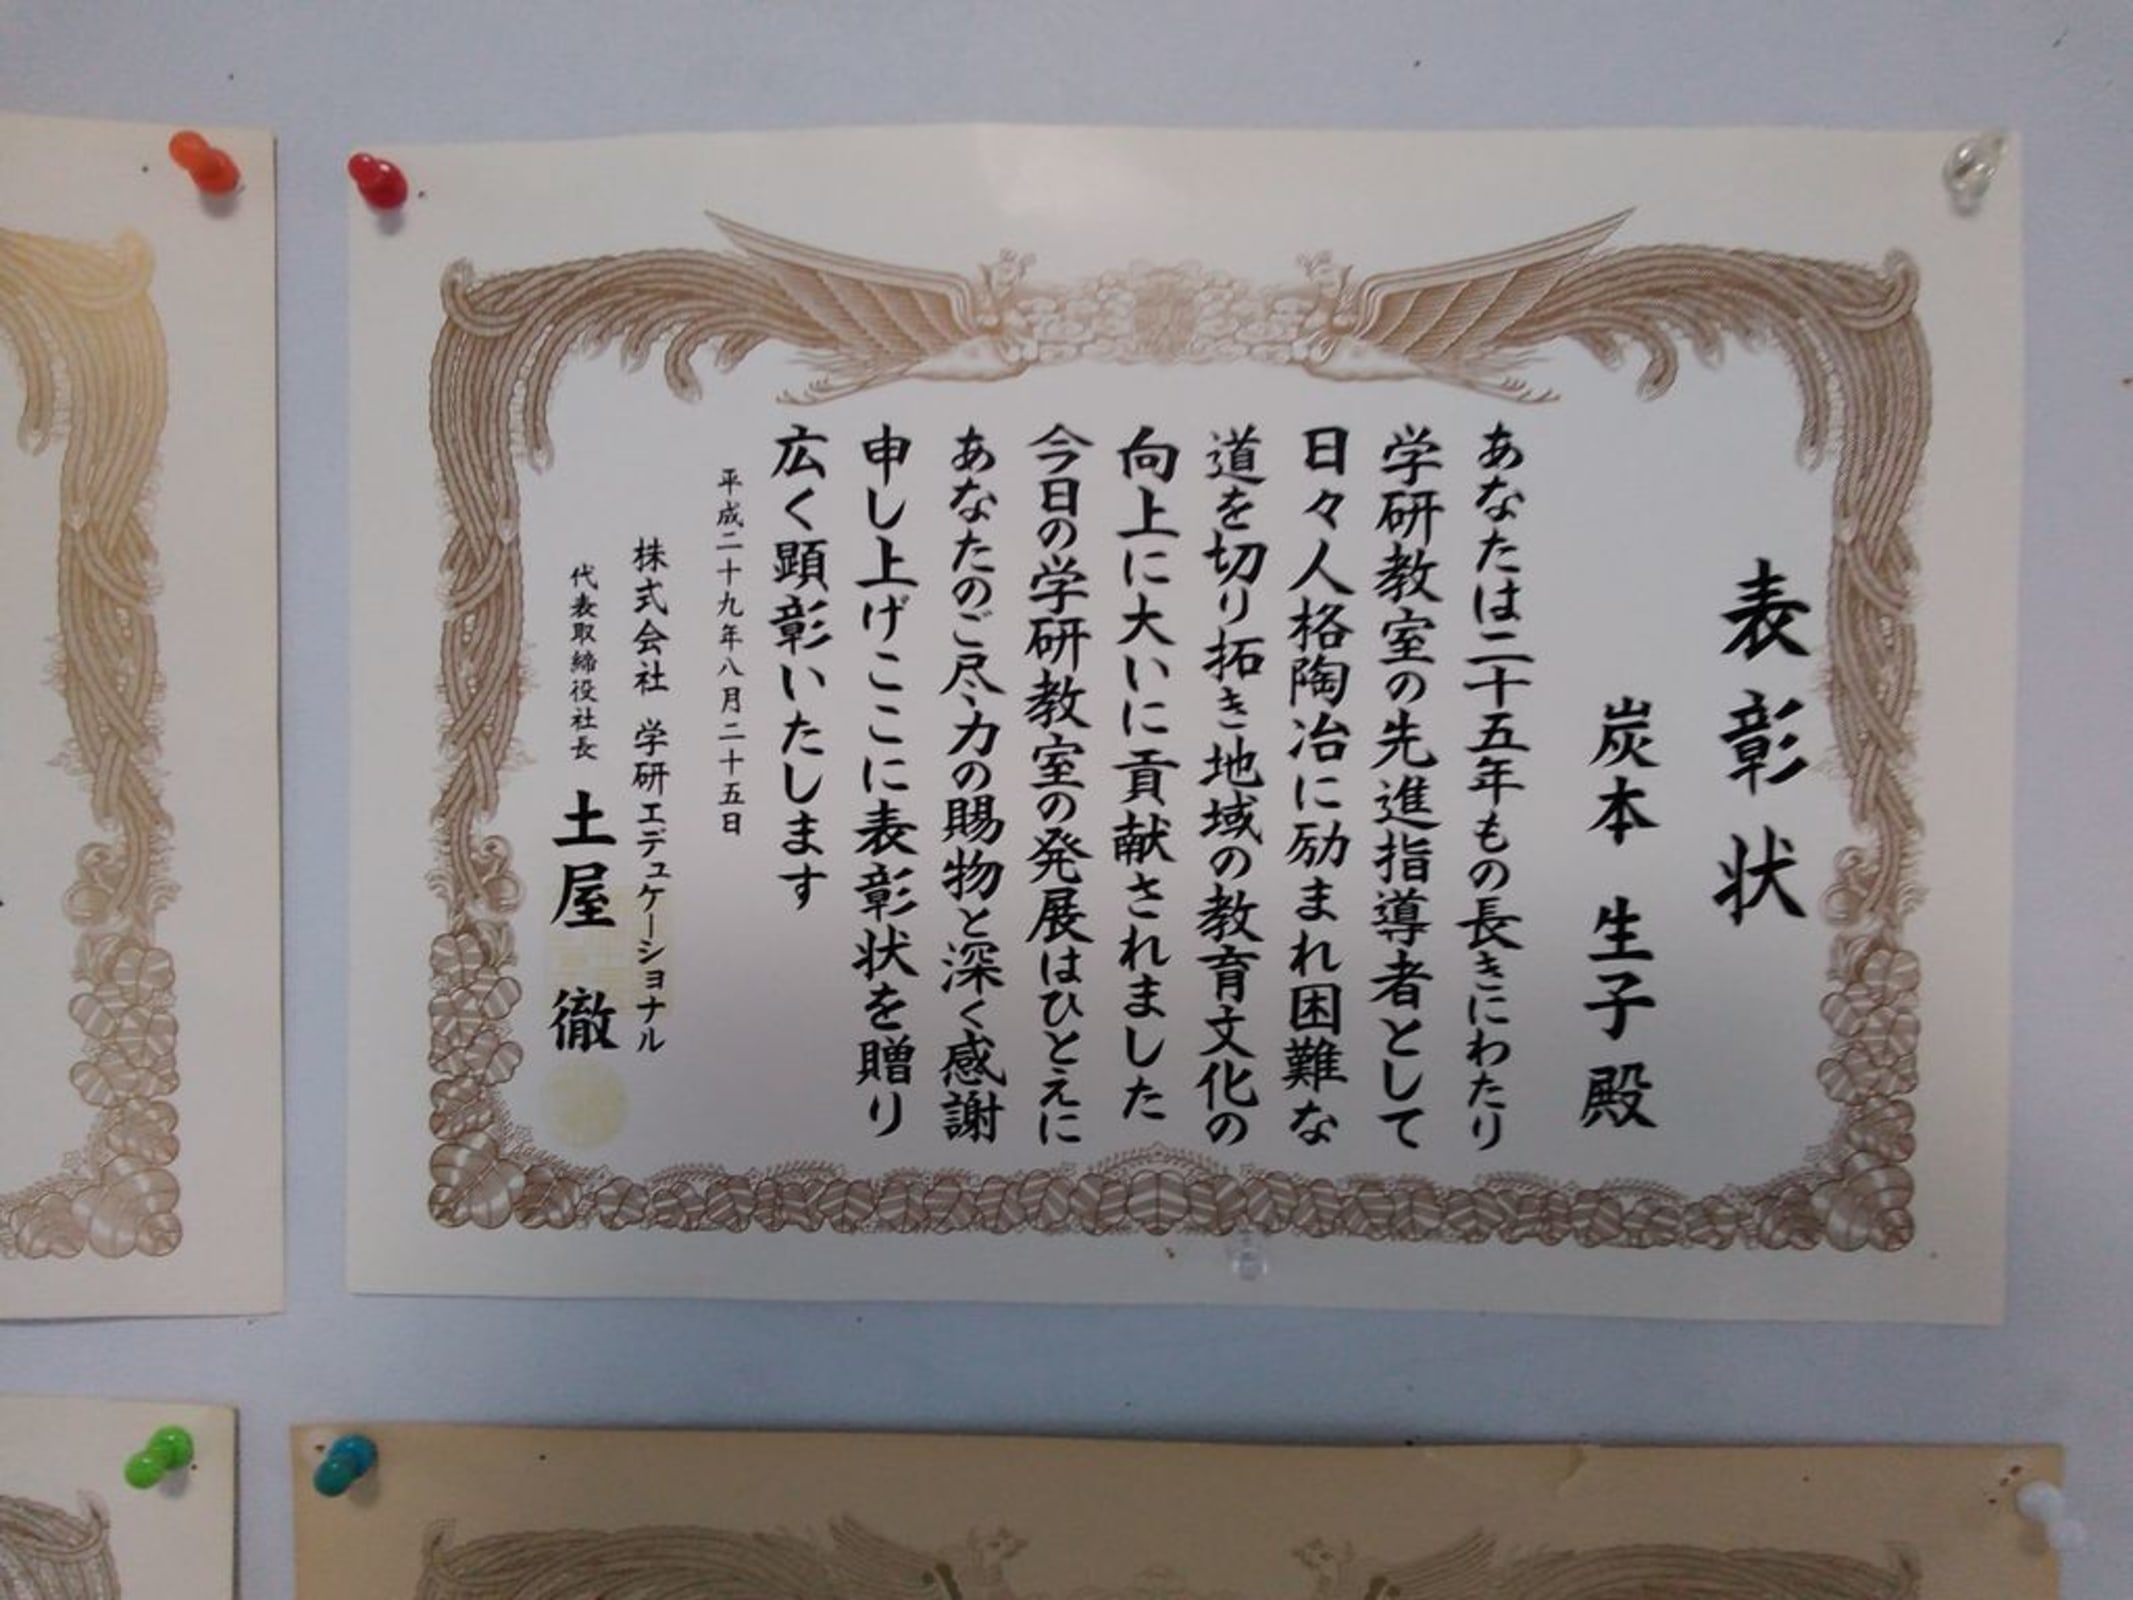 表彰状
炭本 生子 殿
あなたは二十五年もの長きにわたり
学研教室の先進指導者として
日々人格陶冶に励まれ困難な
道を切り拓き地域の教育文化の
向上に大いに貢献されました
今日の学研教室の発展はひとえに
あなたのご尽力の賜物と深く感謝
申し上げここに表彰状を贈り
広く顕彰いたします
平成二十九年八月二十五日
株式会社 学研エデュケーショナル
代表取締役社長 土屋 徹